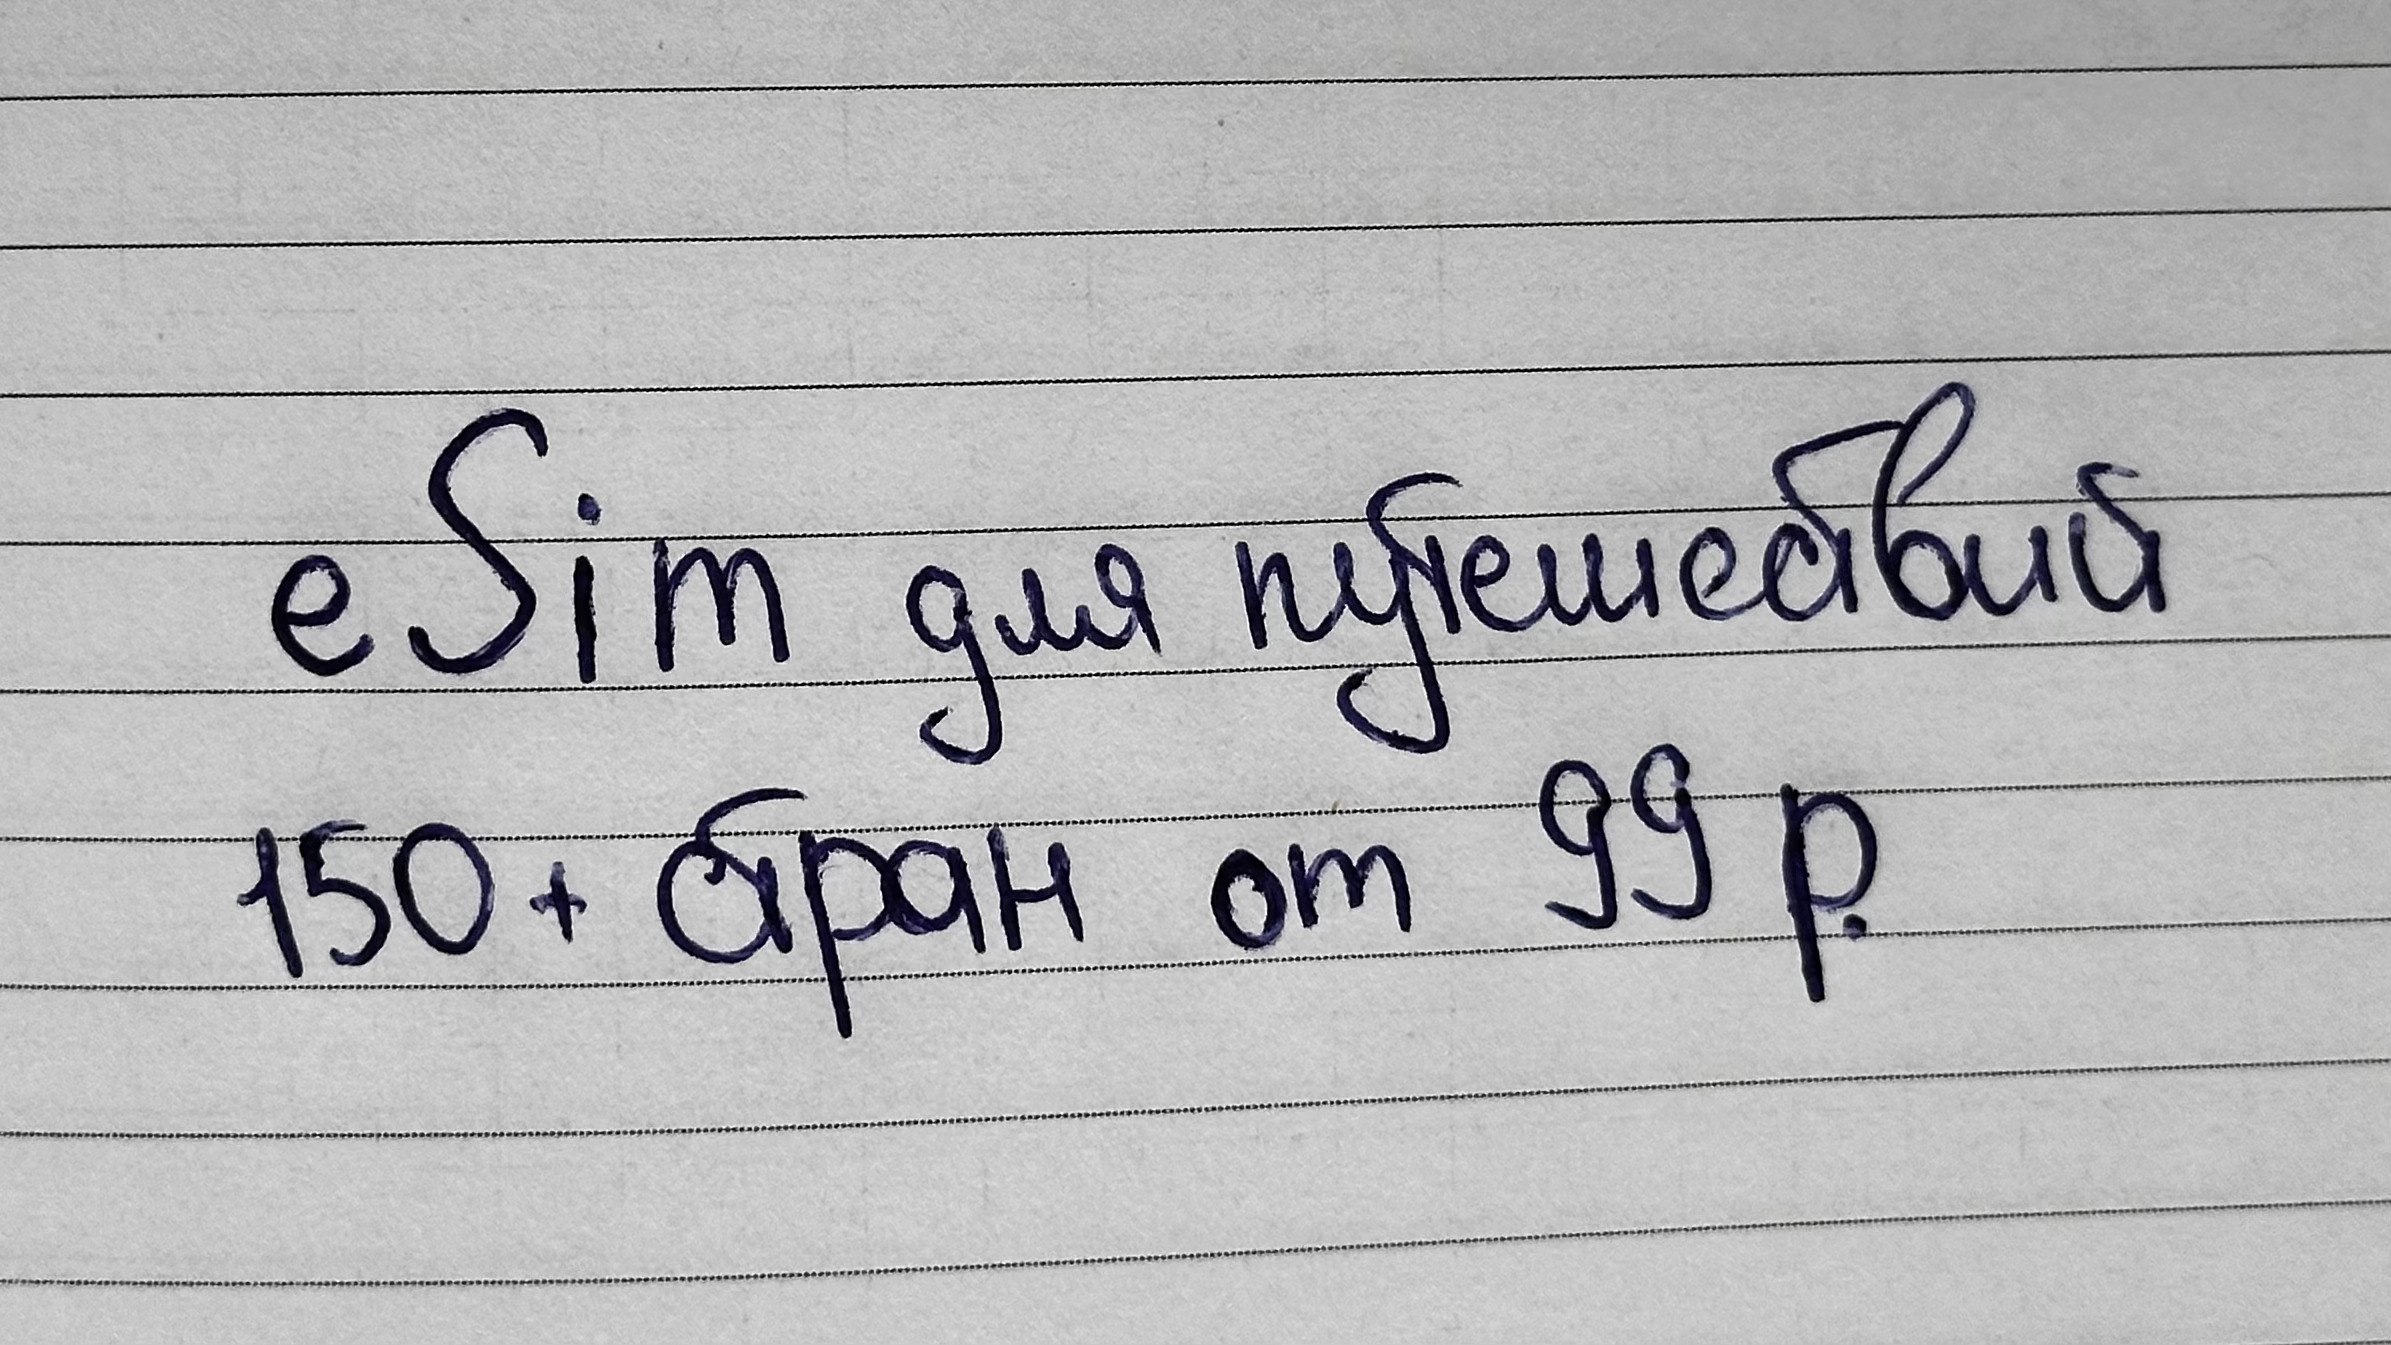 eSim для путешествий
150+ стран от 99 р.